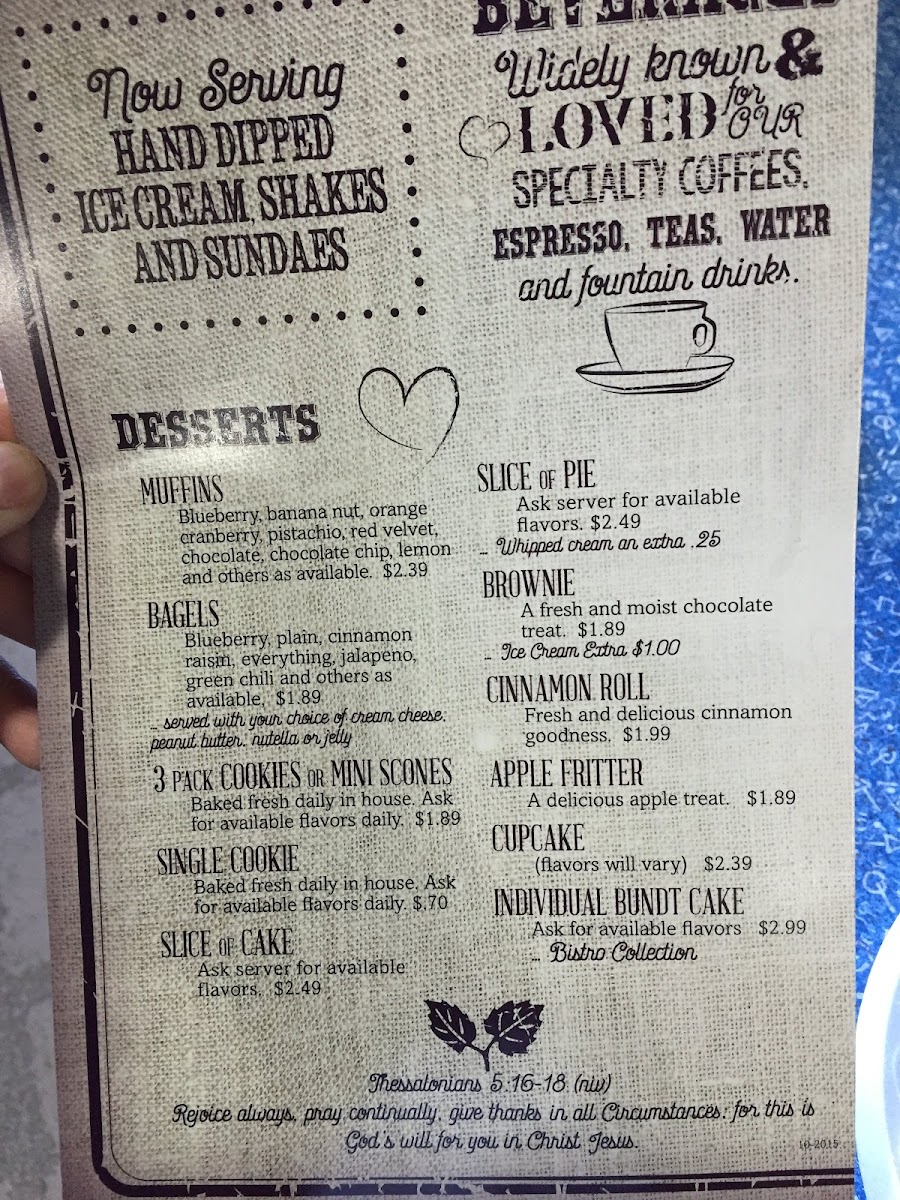 Now Serving
HAND DIPPED
ICE CREAM, SHAKES
AND SUNDAES
BEVERAGES
Widely known &
LOVED for OUR
SPECIALTY COFFEES,
ESPRESSO, TEAS, WATER
and fountain drinks.
DESSERTS
MUFFINS
Blueberry, banana nut, orange
cranberry, pistachio, red velvet,
chocolate, chocolate chip, lemon
and others as available. $2.39
BAGELS
Blueberry, plain, cinnamon
raisin, everything, jalapeno,
green chili and others as
available, $1.89
... served with your choice of cream cheese,
peanut butter, nutella or jelly
3 PACK COOKIES OR MINI SCONES
Baked fresh daily in house. Ask
for available flavors daily. $1.89
SINGLE COOKIE
Baked fresh daily in house. Ask
for available flavors daily. $.70
SLICE OF CAKE
Ask server for available
flavors. $2.49
SLICE OF PIE
Ask server for available
flavors. $2.49
... Whipped cream an extra .25
BROWNIE
A fresh and moist chocolate
treat. $1.89
... Ice Cream Extra $1.00
CINNAMON ROLL
Fresh and delicious cinnamon
goodness. $1.99
APPLE FRITTER
A delicious apple treat. $1.89
CUPCAKE
(flavors will vary) $2.39
INDIVIDUAL BUNDT CAKE
Ask for available flavors $2.99
... Bistro Collection
Thessalonians 5:16-18 (niv)
Rejoice always, pray continually, give thanks in all Circumstances; for this is
God's will for you in Christ Jesus.
10-2015